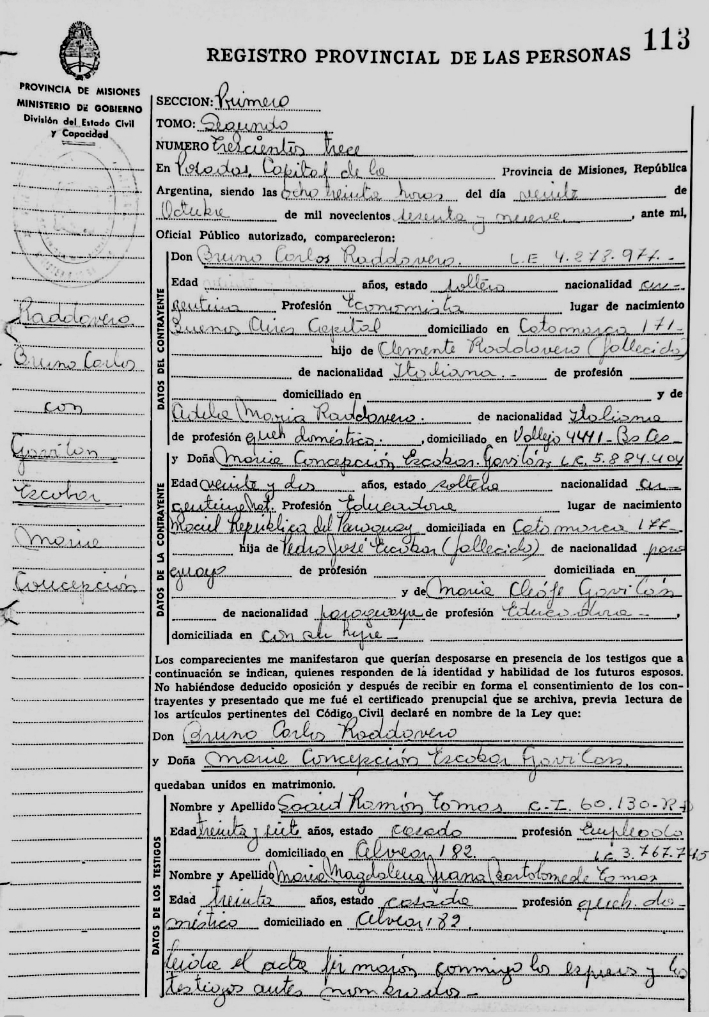 113
REGISTRO PROVINCIAL DE LAS PERSONAS
PROVINCIA DE MISIONES
MINISTERIO DE GOBIERNO
División del Estado Civil
y Capacidad
Raddavero
Bruno Carlos
con
Gavilán
Escobar
Maria
Concepción
SECCION: Primero
TOMO: Segundo
NUMERO trescientos trece
En Posadas, Capital de la Provincia de Misiones, República
Argentina, siendo las ocho treinta horas del día veinte de
Octubre de mil novecientos sesenta y nueve, ante mi,
Oficial Público autorizado, comparecieron:
DATOS DEL CONTRAYENTE
Don Bruno Carlos Raddavero. L.E 4.273.977.-
Edad años, estado soltero nacionalidad ar-
gentina Profesión Economista lugar de nacimiento
Buenos Aires Capital domiciliado en Catamarca 171-
hijo de Clemente Raddavero (fallecido)
de nacionalidad Italiana.- de profesión
domiciliado en y de
Adelia Maria Raddavero. de nacionalidad Italiana
de profesión queh doméstico. , domiciliado en Vallejo 4441-Bs As-
y Doña Maria Concepción Escobar Gavilán, L.C. 5.884.404
DATOS DE LA CONTRAYENTE
Edad veinte y dos años, estado soltera nacionalidad ar-
gentina Nat. Profesión Educadora lugar de nacimiento
Maciel República del Paraguay domiciliada en Catamarca 177-
hija de Pedro José Escobar (fallecido) de nacionalidad para
guayo de profesión domiciliado en
y de Maria Cleófe Gavilán
de nacionalidad paraguaya de profesión Educadora - ,
domiciliada en con su hija -
Los comparecientes me manifestaron que querían desposarse en presencia de los testigos que a
continuación se indican, quienes responden de la identidad y habilidad de los futuros esposos.
No habiéndose deducido oposición y después de recibir en forma el consentimiento de los con-
trayentes y presentado que me fué el certificado prenupcial que se archiva, previa lectura de
los artículos pertinentes del Código Civil declaré en nombre de la Ley que:
Don Bruno Carlos Raddavero
y Doña Maria Concepción Escobar Gavilán.
quedaban unidos en matrimonio.
DATOS DE LOS TESTIGOS
Nombre y Apellido Ramón Tomas C.I. 60.130-
Edad treinta y siete años, estado casado profesión Empleado
domiciliado en Alvear 182. L.C 3.767.745
Nombre y Apellido Maria Magdalena Juana Bartolome de Tomas
Edad treinta años, estado casada profesión queh. do-
méstico domiciliado en Alvear 182.
leida el acta firmaron conmigo los esposos y los
testigos antes nombrados -